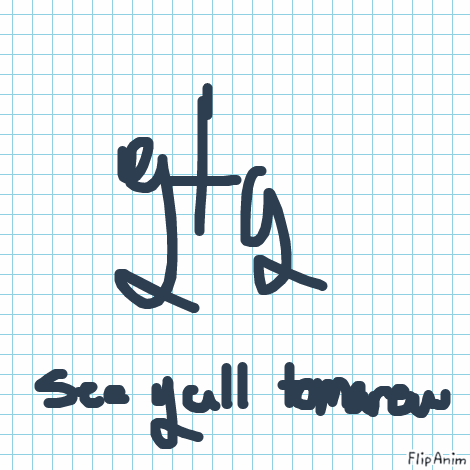 gtg
see yall tomorrow
FlipAnim